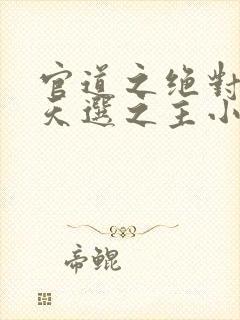 官道之绝對
天選之主小
帝鲲